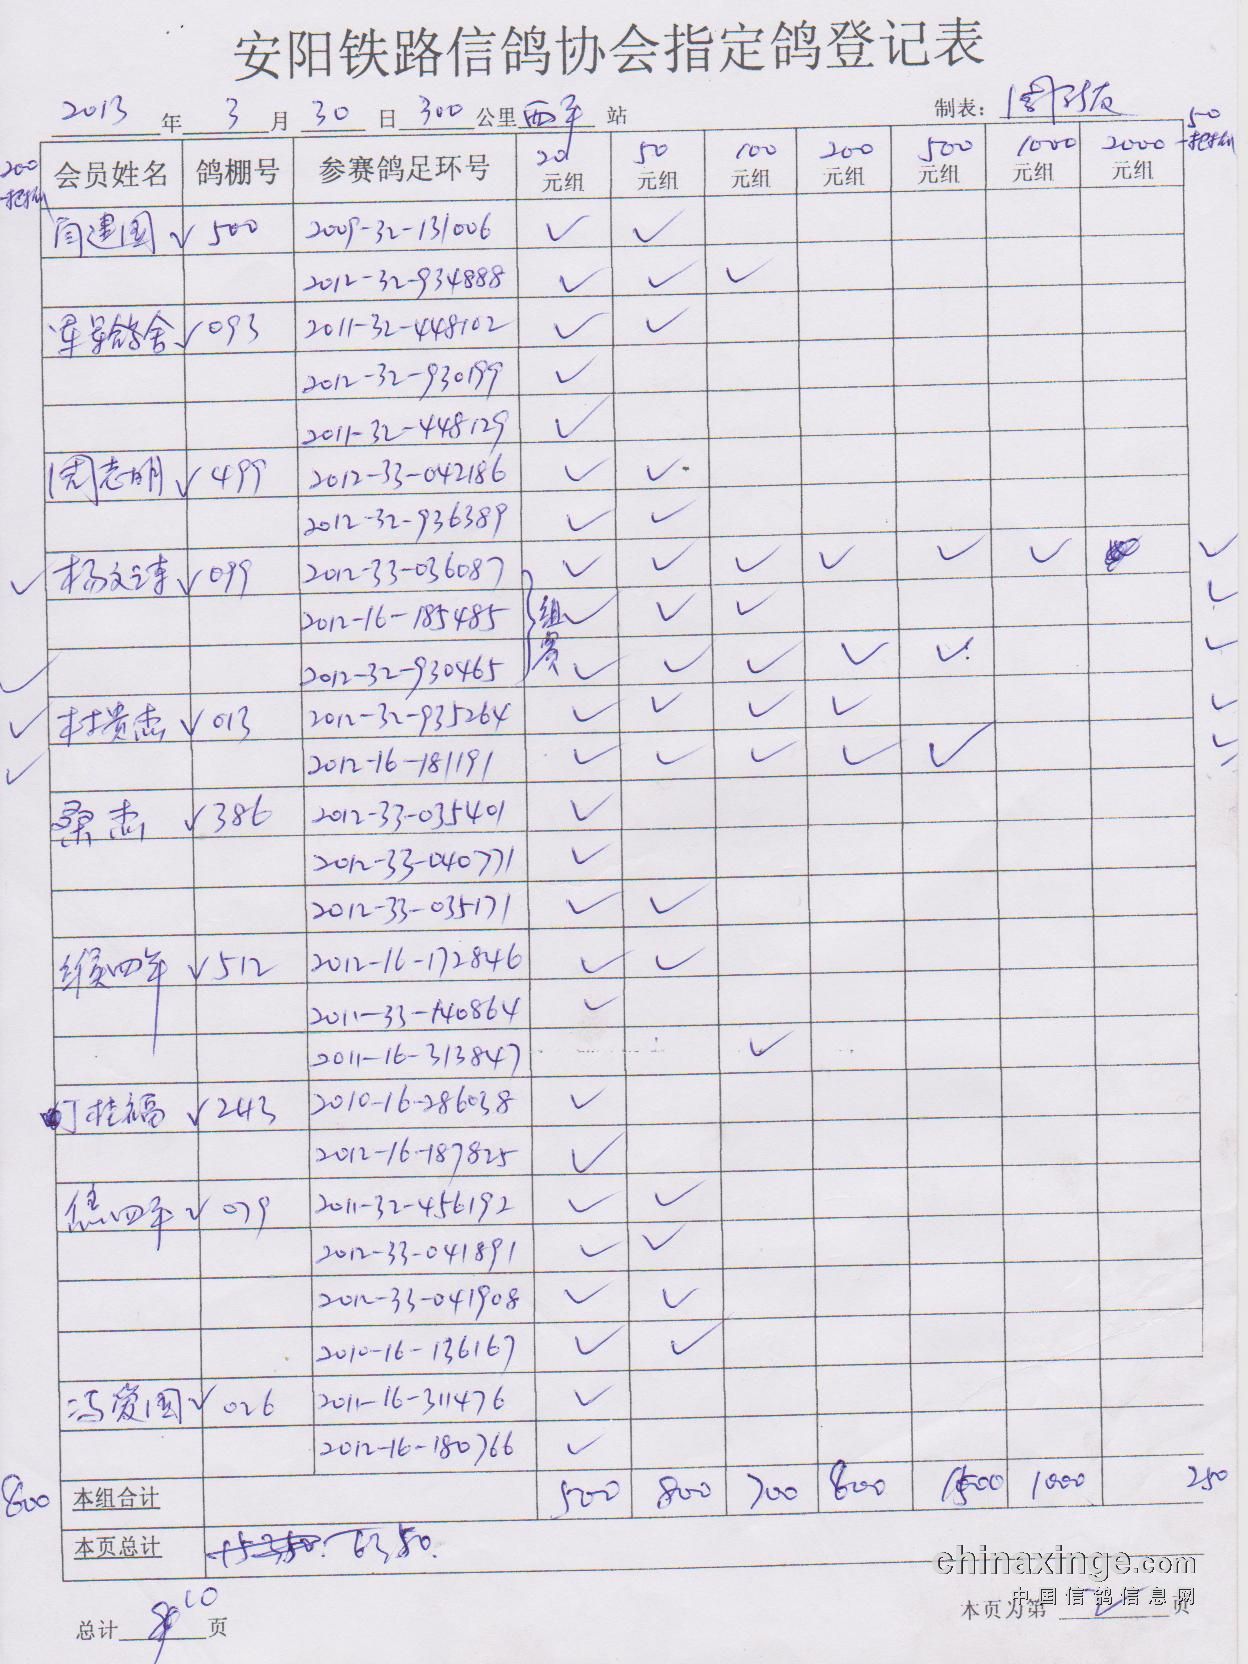 安阳铁路信鸽协会指定鸽登记表
2013 年 3 月 30 日 300 公里 西平 站 制表：
200 一把抓 会员姓名 鸽棚号 参赛鸽足环号 20元组 50元组 100元组 200元组 500元组 1000元组 2000元组 50 一把抓
闫建国 √ 500 2009-32-131006 √ √
2012-32-934888 √ √ √
星鸽舍 √ 093 2011-32-448102 √ √
2012-32-930199 √
2011-32-448129 √
周志明 √ 499 2012-33-042186 √ √
2012-32-936389 √ √
√ 杨文 √ 099 2012-33-036087 √ √ √ √ √ √ √
2012-16-185485 组员 √ √ √ √
√ 2012-32-930465 √ √ √ √ √ √
√ 贵杰 √ 013 2012-32-935264 √ √ √ √ √
√ 2012-16-181191 √ √ √ √ √ √
桑杰 √ 386 2012-33-035401 √
2012-33-040771 √
2012-33-035171 √ √
四年 √ 512 2012-16-172846 √ √
2011-33-140864 √
2011-16-313847 √
桂福 √ 243 2010-16-286038 √
2012-16-187825 √
焦四年 √ 079 2011-32-456192 √ √
2012-33-041891 √ √
2012-33-041908 √ √
2010-16-136167 √ √
冯爱国 √ 026 2011-16-311476 √
2012-16-180766 √
800 本组合计 500 800 700 800 1500 1000 250
本页总计 15350. 6350.
总计 10 页 本页为第 2 页
chinaxinge.com
中国信鸽信息网